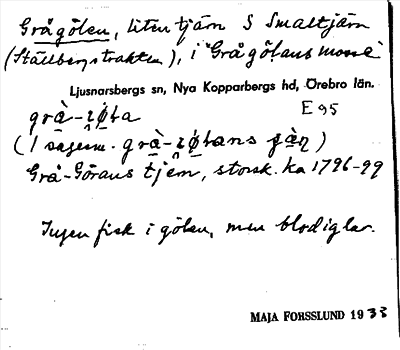 Grågölen, liten tjärn S Smaltjärn
(Ställbergstrakten), i "Grågölans mosse"
Ljusnarsbergs sn, Nya Kopparbergs hd, Örebro län.
E 95
(I sägesm.
Grå-Görans tjern, storsk. ka 1796-99
Ingen fisk i gölen, men blodiglar.
MAJA FORSSLUND 1933